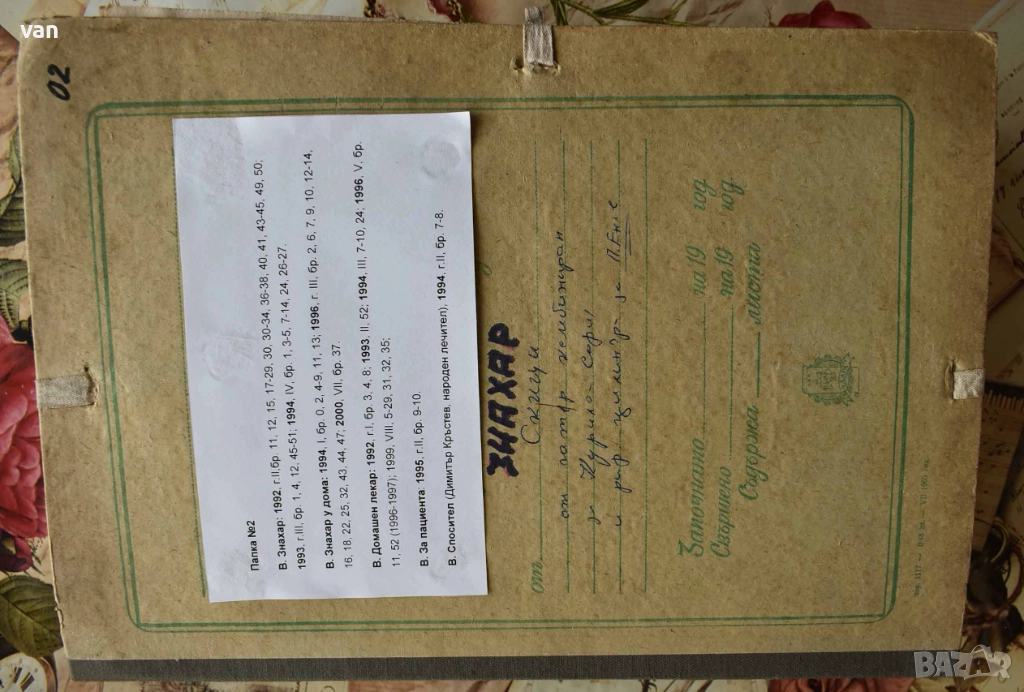 van
02
Папка №2
В. Знахар: 1992, г.II,бр. 11, 12, 15, 17-29, 30, 30-34, 36-38, 40, 41, 43-45, 49, 50;
1993, г.III, бр. 1, 4, 12, 45-51; 1994, IV, бр. 1, 3-5, 7-14, 24, 26-27.
В. Знахар у дома: 1994, I, бр. 0, 2, 4-9, 11, 13; 1996, г. III, бр. 2, 6, 7, 9, 10, 12-14,
16, 18, 22, 25, 32, 43, 44, 47; 2000, VII, бр. 37.
В. Домашен лекар: 1992, г.I, бр. 3, 4, 8; 1993, II, 52; 1994, III, 7-10, 24; 1996, V, бр.
11, 52 (1996-1997); 1999, VIII, 5-29, 31, 32, 35;
В. За пациента: 1995, г.II, бр. 9-10.
В. Спосител (Димитър Кръстев, народен лечител), 1994, г.II, бр. 7-8.
ЗНАХАР
от
Скици
от
за
и за
Започната на 19 год
Свършена на 19 год.
Съдържа листа
BAZAR